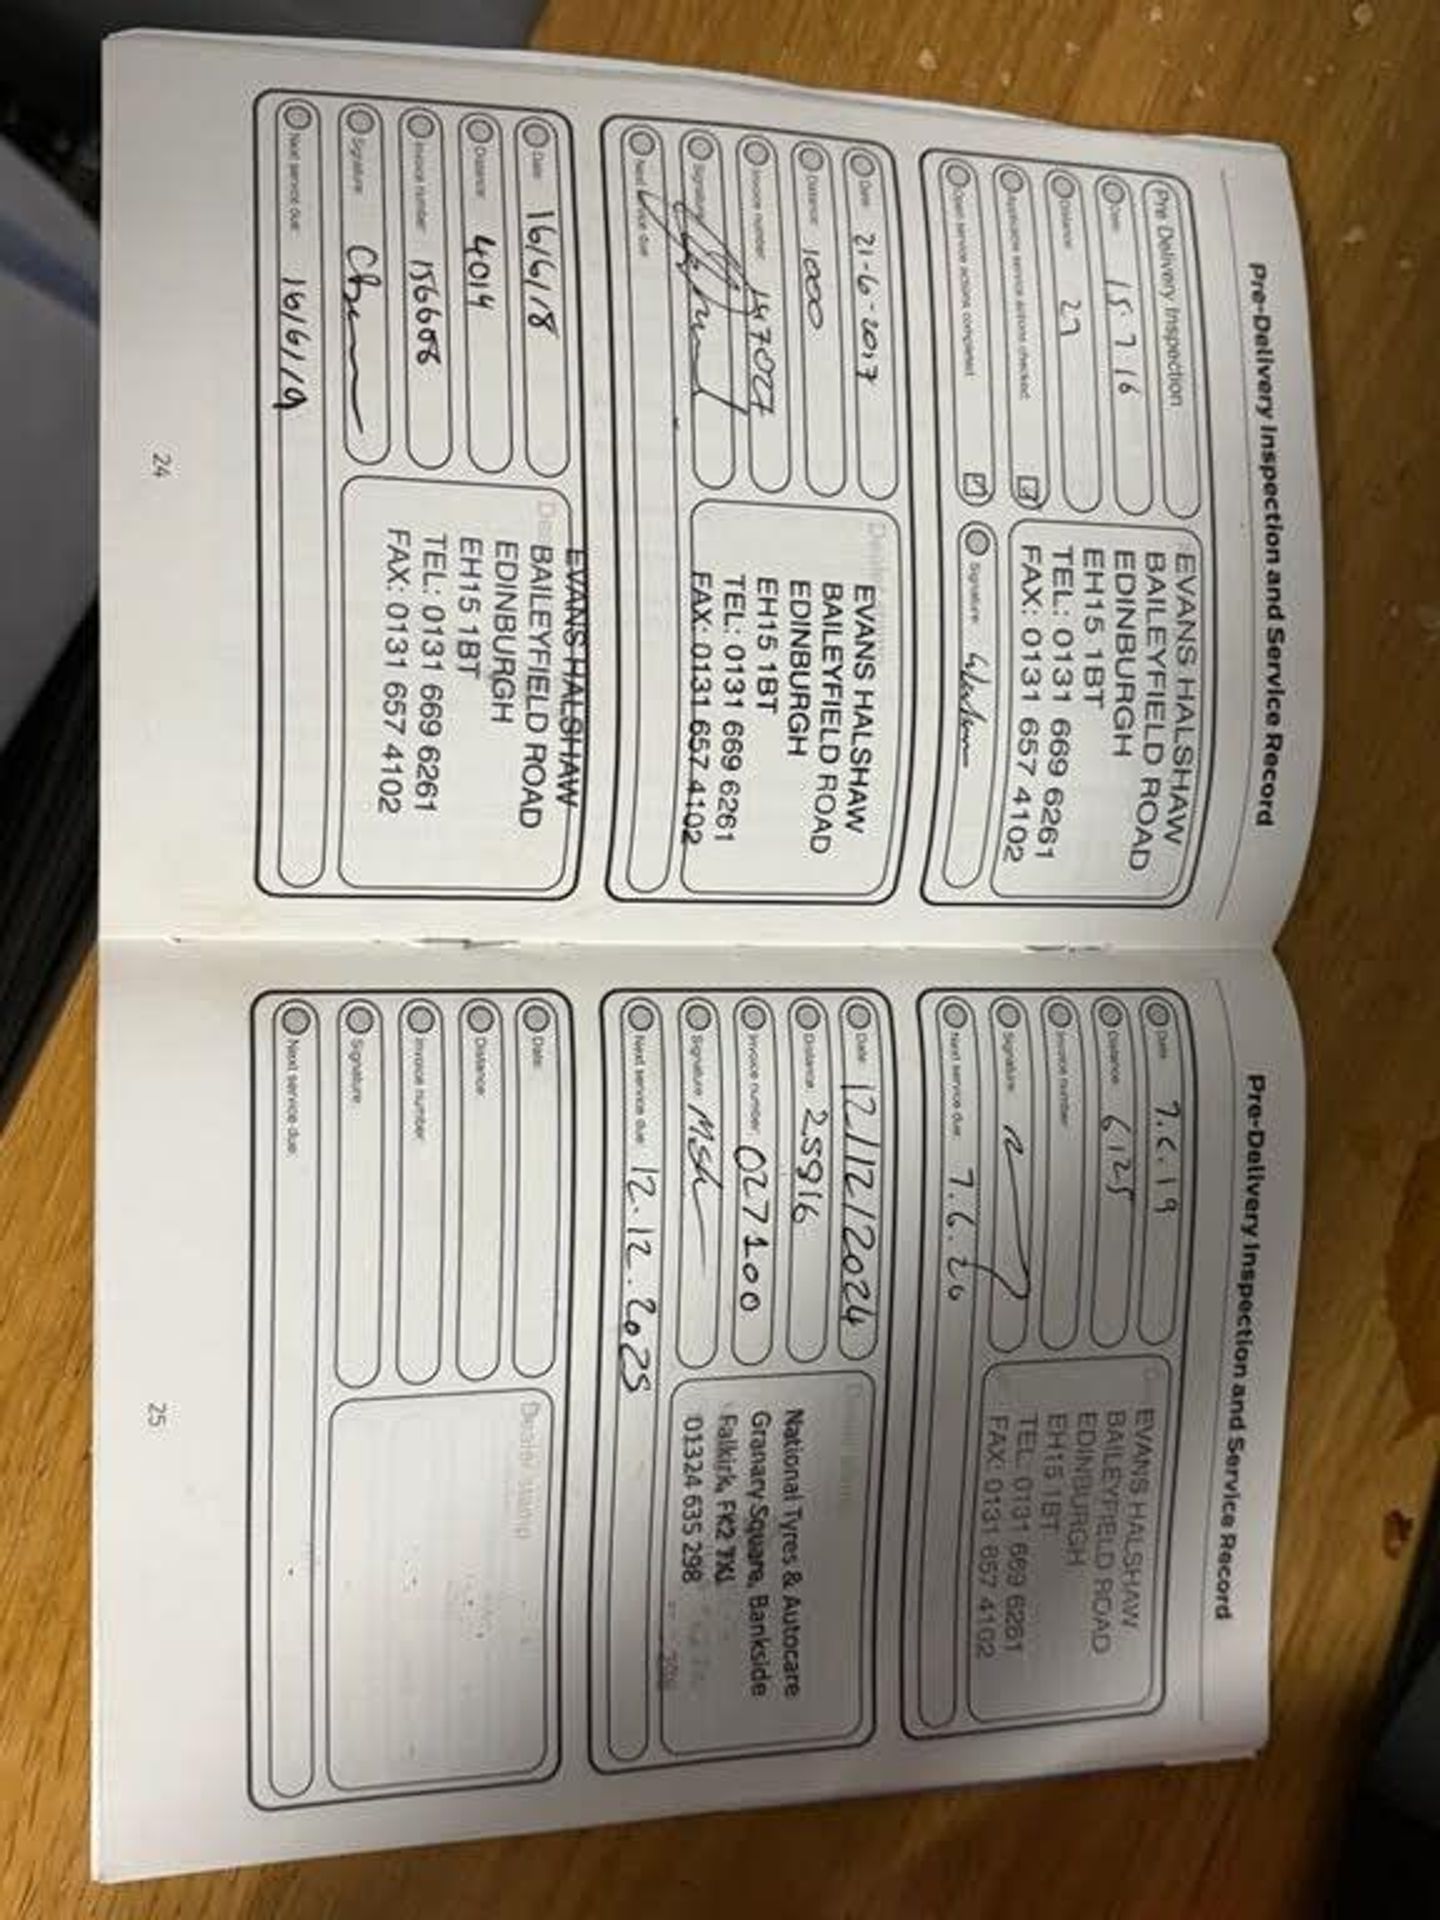 Pre-Delivery Inspection and Service Record
Pre Delivery Inspection
Date: 15.7.16
Distance: 27
Applicable service actions checked:
Open service actions completed:
EVANS HALSHAW
BAILEYFIELD ROAD
EDINBURGH
EH15 1BT
TEL: 0131 669 6261
FAX: 0131 657 4102
Signature:
Date: 21-6-2017
Distance: 1000
Invoice number:
Signature:
Next service due:
EVANS HALSHAW
BAILEYFIELD ROAD
EDINBURGH
EH15 1BT
TEL: 0131 669 6261
FAX: 0131 657 4102
Date: 16/6/18
Distance: 4014
Invoice number: 156608
Signature:
Next service due: 16/6/19
EVANS HALSHAW
BAILEYFIELD ROAD
EDINBURGH
EH15 1BT
TEL: 0131 669 6261
FAX: 0131 657 4102
24
Pre-Delivery Inspection and Service Record
Date: 7.6.19
Distance: 6125
Invoice number:
Signature:
Next service due: 7.6.20
EVANS HALSHAW
BAILEYFIELD ROAD
EDINBURGH
EH15 1BT
TEL: 0131 669 6261
FAX: 0131 657 4102
Date: 12/12/2024
Distance: 25916
Invoice number: 027100
Signature:
Next service due: 12.12.2025
National Tyres & Autocare
Granary Square, Bankside
Falkirk, FK2 7XJ
01324 635 298
Date:
Distance:
Invoice number:
Signature:
Next service due:
Dealer stamp
25